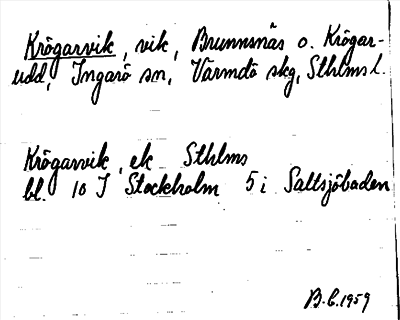 Krögarvik, vik, Brunnsnäs o. Krögar-
udd, Ingarö sn, Värmdö skg, Sthlms l.
Krögarvik, ek Sthlms
bl. 10 I Stockholm 5 i Saltsjöbaden
B.C. 1959